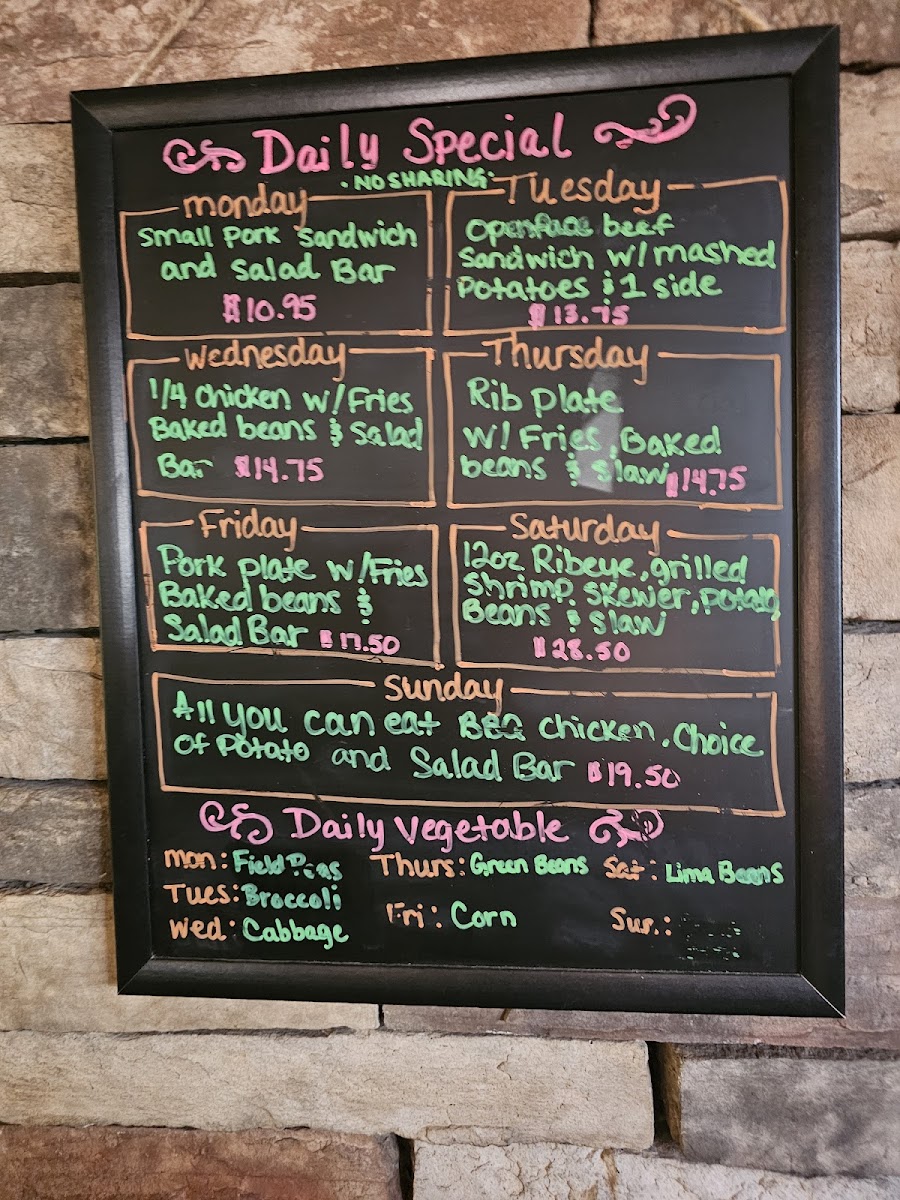 Daily Special
• NO SHARING •
monday
Small Pork Sandwich
and Salad Bar
$10.95
Tuesday
Openface beef
Sandwich w/ mashed
Potatoes & 1 side
$13.75
Wednesday
1/4 Chicken w/ Fries
Baked beans & Salad
Bar $14.75
Thursday
Rib plate
w/ Fries, Baked
beans & Slaw $14.75
Friday
Pork plate w/Fries
Baked beans &
Salad Bar $17.50
Saturday
12oz Ribeye, grilled
Shrimp Skewer, Potato,
Beans & Slaw
$28.50
Sunday
All you can eat BBQ Chicken, Choice
Of Potato and Salad Bar $19.50
Daily Vegetable
Mon: Field Peas
Tues: Broccoli
Wed: Cabbage
Thurs: Green Beans
Fri: Corn
Sat: Lima Beans
Sun: